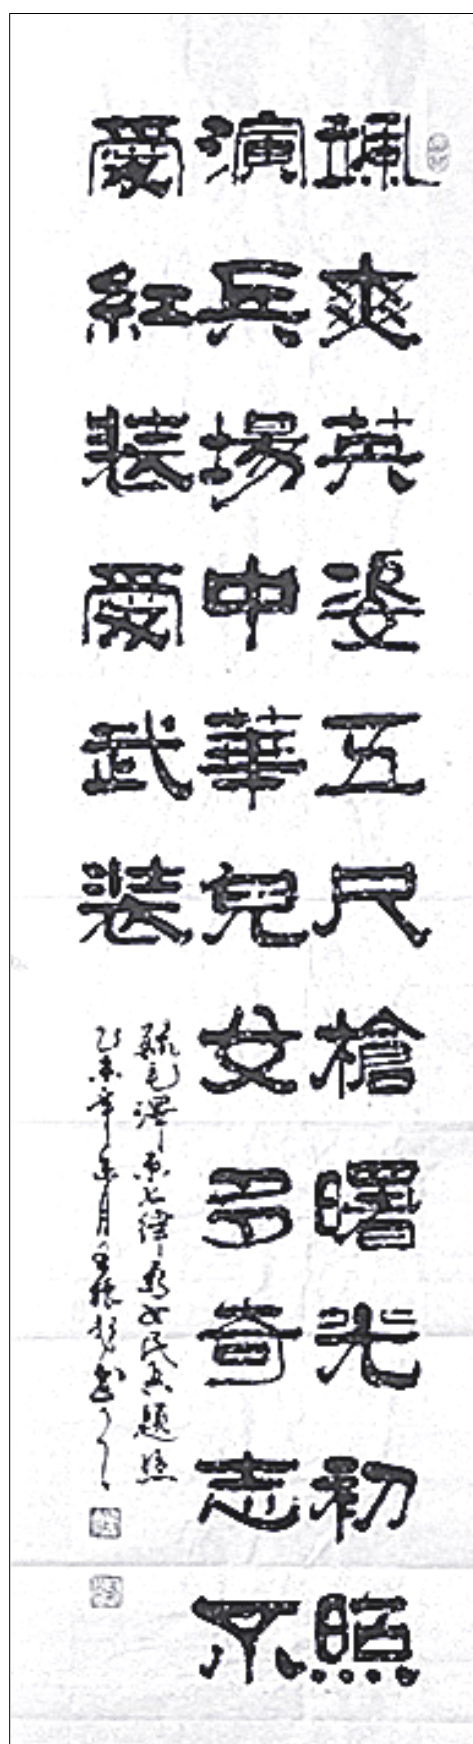 颯爽英姿五尺槍曙光初照
演兵場中華兒女多奇志不
愛紅裝愛武裝
毛澤东七律為女民兵題照
乙未年